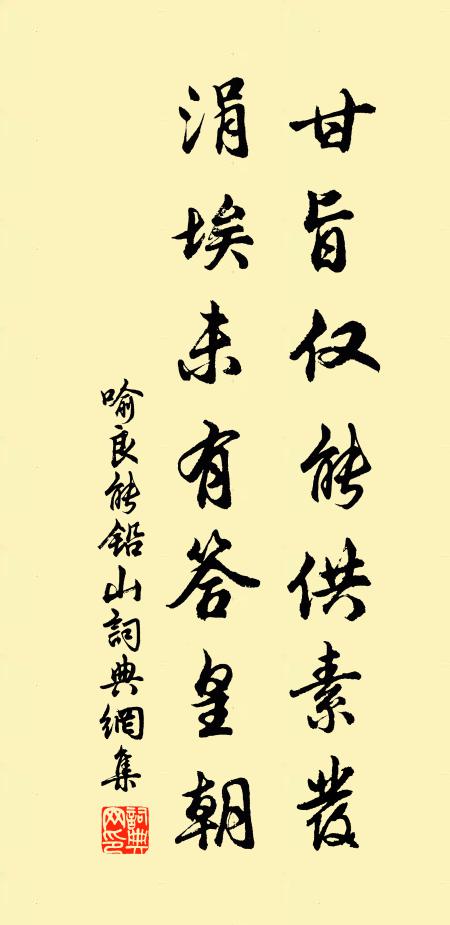 甘旨仅能供素发
涓埃未有答皇朝
喻良能鉛山詞典網集
詞典網印